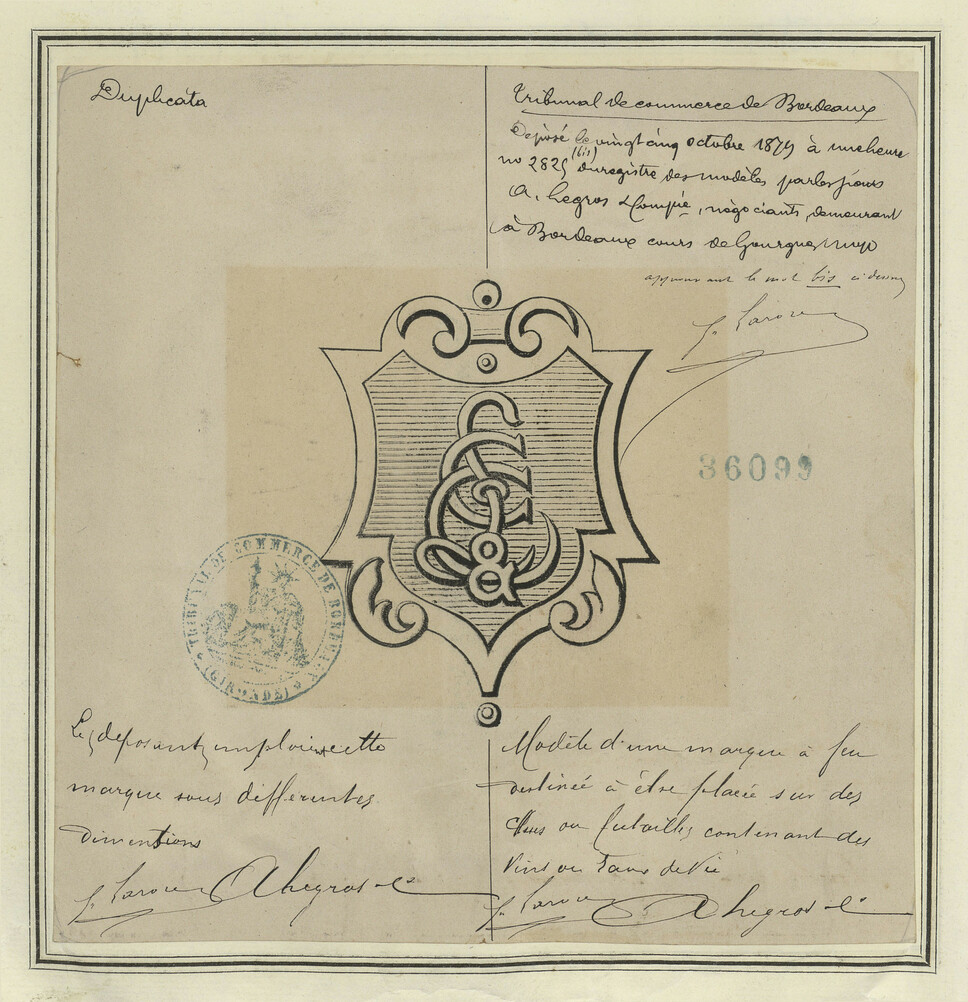 Duplicata
Tribunal de commerce de Bordeaux
Déposé le vingt cinq octobre 1879 à une heure
no 2825 (bis) du registre des modèles par les sieurs
A. Legros & Compie, négociants, demeurant
à Bordeaux cours de Gourgue, no
approuvant le mot bis ci dessus
36099
TRIBUNAL DE COMMERCE DE BORDEAUX
(GIRONDE)
Les déposants emploient cette
marque sous différentes
dimentions
A Legros & Ce
Modèle d'une marque à feu
destinée à être placée sur des
ou futailles contenant des
Vins ou Eaux de Vie
A Legros & Ce